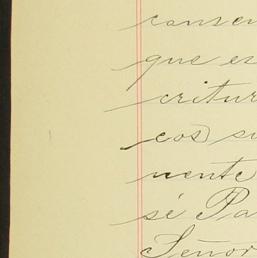 consen
que es
critur
cos) su
mente
sé Pa
Señor